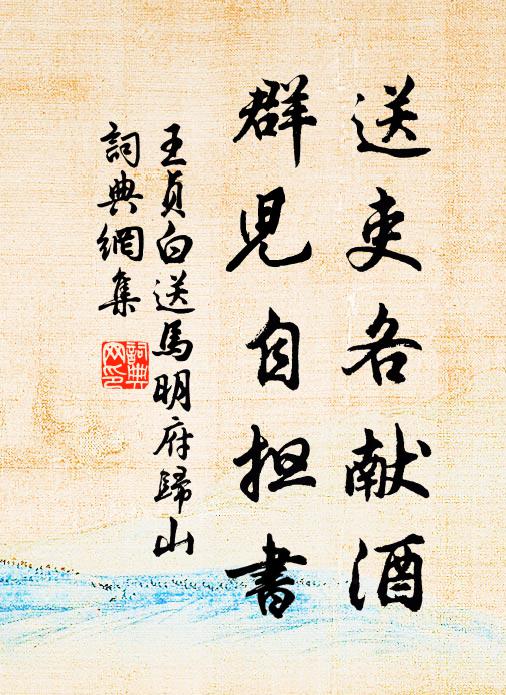 送吏各献酒
群児自担書
王貞白送馬明府歸山
詞典網集
詞典網印